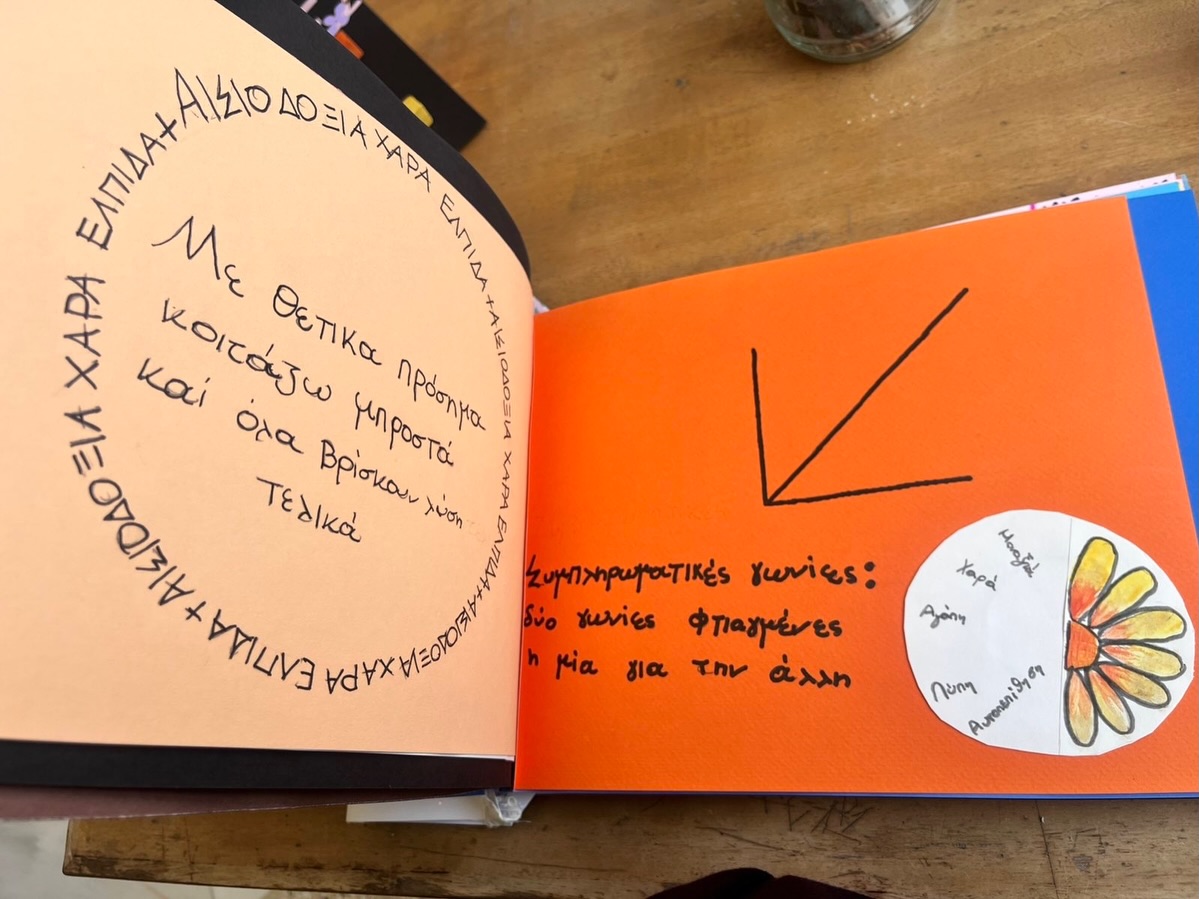 ΑΙΣΙΟΔΟΞΙΑ ΧΑΡΑ ΕΛΠΙΔΑ + ΑΙΣΙΟΔΟΞΙΑ ΧΑΡΑ ΕΛΠΙΔΑ + ΑΙΣΙΟΔΟΞΙΑ ΧΑΡΑ ΕΛΠΙΔΑ + ΑΙΣΙΟΔΟΞΙΑ ΧΑΡΑ ΕΛΠΙΔΑ +
Με θετικα πρόσημα
κοιτάζω μπροστά
και όλα βρίσκουν λύση
τελικά
Συμπληρωματικές γωνίες:
δύο γωνίες φτιαγμένες
η μία για την άλλη
Μοναξιά
Χαρά
Αγάπη
Λύπη
Αυτοπεπίθηση